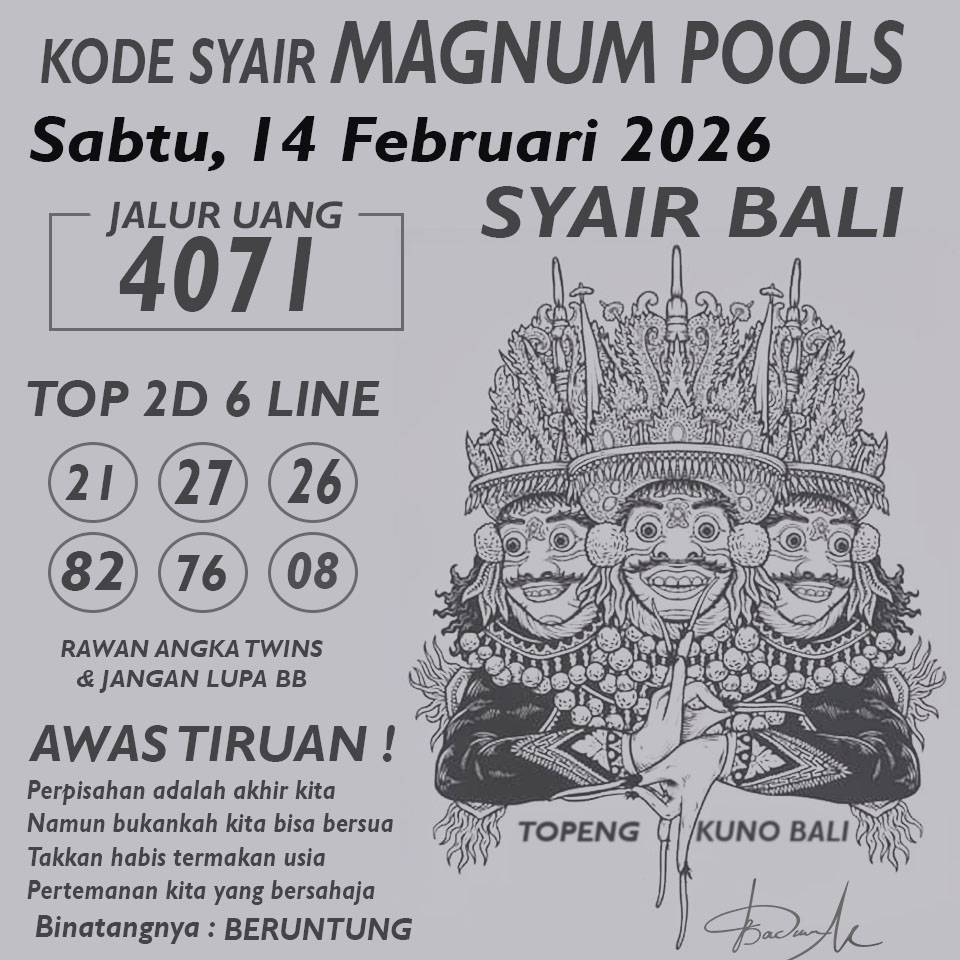 KODE SYAIR MAGNUM POOLS
Sabtu, 14 Februari 2026
SYAIR BALI
JALUR UANG
4071
TOP 2D 6 LINE
21 27 26
82 76 08
RAWAN ANGKA TWINS
& JANGAN LUPA BB
AWAS TIRUAN !
Perpisahan adalah akhir kita
Namun bukankah kita bisa bersua
Takkan habis termakan usia
Pertemanan kita yang bersahaja
Binatangnya : BERUNTUNG
TOPENG KUNO BALI